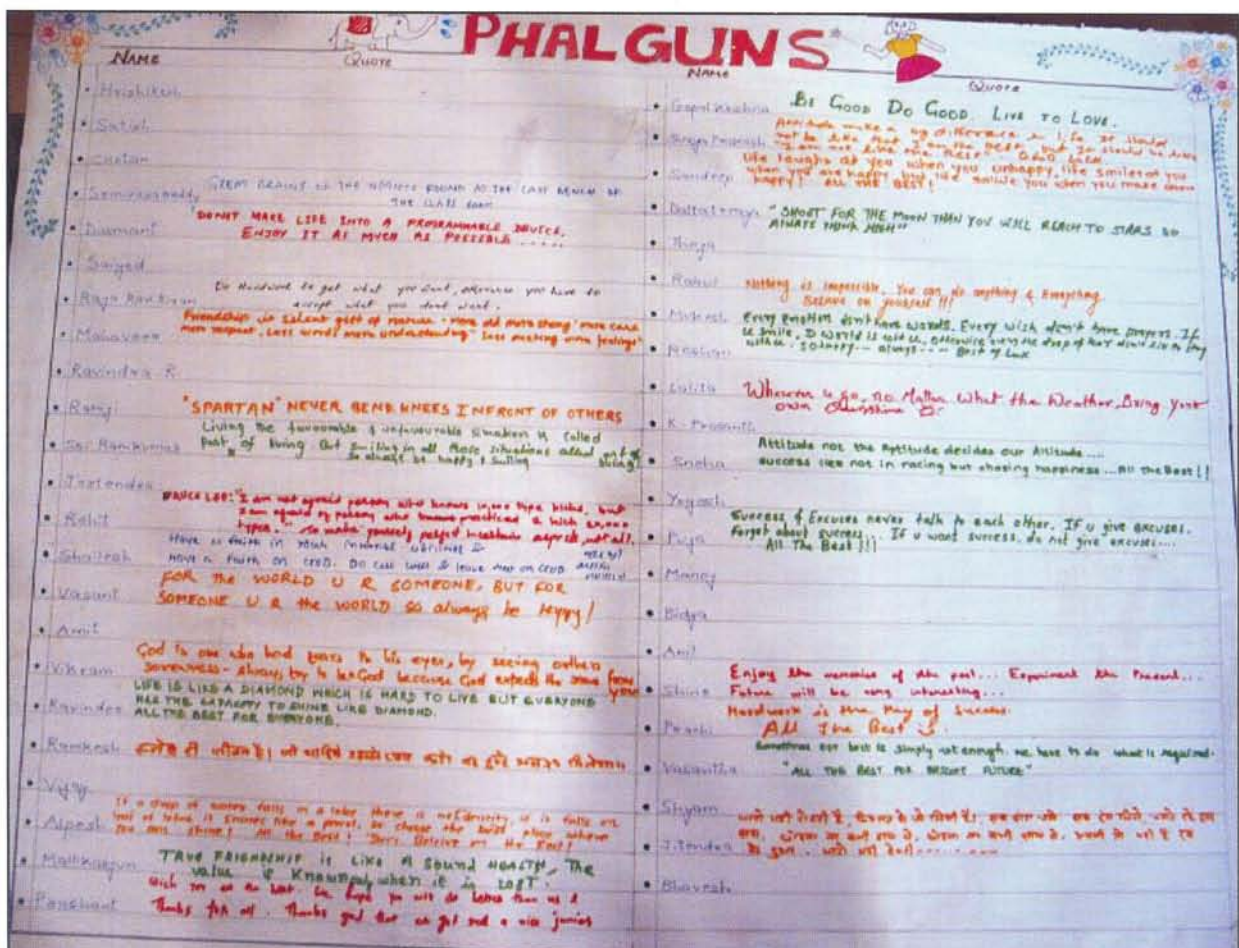 PHALGUNS
NAME
QUOTE
Hrishikesh
Satish
Chetan
GREAT BRAINS OF THE NATION'S FOUND AT THE LAST BENCH OF
THE CLASS ROOM
Diamant
"DONOT MAKE LIFE INTO A PROGRAMMABLE DEVICE.
ENJOY IT AS MUCH AS POSSIBLE .....
Saiyed
Do Hardwork to get what you want, otherwise you have to
accept what you dont want.
Raja Ravi Kiran
Friendship is silent gift of nature. more old more strong more care
more respect, Less words more understanding Less meeting more feelings"
Mahaveer
Ravindra R.
Ramji
"SPARTAN" NEVER BEND KNEES INFRONT OF OTHERS
Living the favourable & unfavourable situation is called
Sai Ramkumar
part of living. But smiling in all those situations called art of living!
So always be happy & smiling
Jeetendra
BRUCE LEE: "I am not afraid person who knows 10,000 type kicks, but
Rohit
I am afraid of person who practiced a kick 10,000
Have a faith in your internal abilities &
Shailesh
Have a faith on GOD.
Vasant
FOR the WORLD U R SOMEONE, BUT FOR
SOMEONE U R the WORLD so always be Happy!
Amit
God is one who had tears in his eyes, by seeing others
Vikram
because God expects the same from you
LIFE IS LIKE A DIAMOND WHICH IS HARD TO LIVE BUT EVERYONE
Ravindra
HAS THE CAPACITY TO SHINE LIKE DIAMOND.
ALL THE BEST FOR EVERYONE.
Ramkesh
Vijay
If a drop of water falls in a lake there is no identity, if it falls on
Alpesh
leaf of lotus it shines like a pearl, so choose the best place where
you can shine! All the Best!
Mallikarjun
TRUE FRIENDSHIP is LIKE A Sound HEALTH, The
value is Known only when it is LOST.
Wish you all the best. We hope you will do better than us &
Prashant
Thanks for all. Thanks god that we got such a nice juniors
NAME
QUOTE
Gopal Krishna
BE GOOD DO GOOD. LIVE TO LOVE.
Attitude make a big difference in life. It should
not be like that I am the Best, but It should be like
Life laughs at you when you unhappy, life smiles at you
Sandeep
when you are happy, but life salute you when you make others
happy! ALL THE BEST!
Dattatreya
"SHOOT FOR THE MOON THAN YOU WILL REACH TO STARS SO
ALWAYS THINK HIGH"
Rahul
Nothing is impossible. You can do anything & Everything
Believe on yourself!!!
Mukesh
Every emotion don't have words. Every wish don't have prayers. If
u smile, D world is with u, otherwise even the drop of tear don't like to stay
Roshan
with u. So happy... always.... Best of Luck
Lalita
Wherever u go, no Matter What the Weather, Bring your
own Sunshine
K. Prasanth
Attitude not the Aptitude decides our Altitude....
Sneha
success lies not in racing but chasing happiness... All the Best!!
Yogesh
Success & Excuses never talk to each other. If u give excuses.
Puja
Forget about success... If u want success, do not give excuses....
All The Best!!!
Manoj
Anil
Enjoy the memories of the past... Experiment the Present...
Shine
Future will be very interesting...
Hardwork is the key of success.
Prachi
All The Best
Sometimes our best is simply not enough. we have to do what is required.
Vasantha
"ALL THE BEST FOR BRIGHT FUTURE"
Shyam
Jitendra
Bhavesh